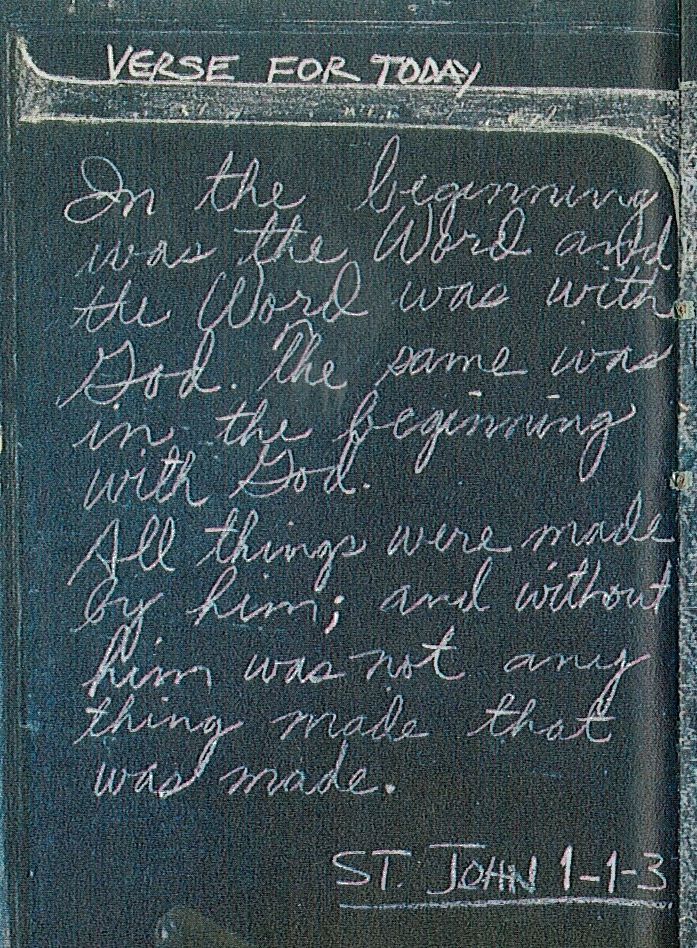 VERSE FOR TODAY
In the beginning
was the Word and
the Word was with
God. The same was
in the beginning
with God.
All things were made
by him; and without
him was not any
thing made that
was made.
ST. JOHN 1-1-3